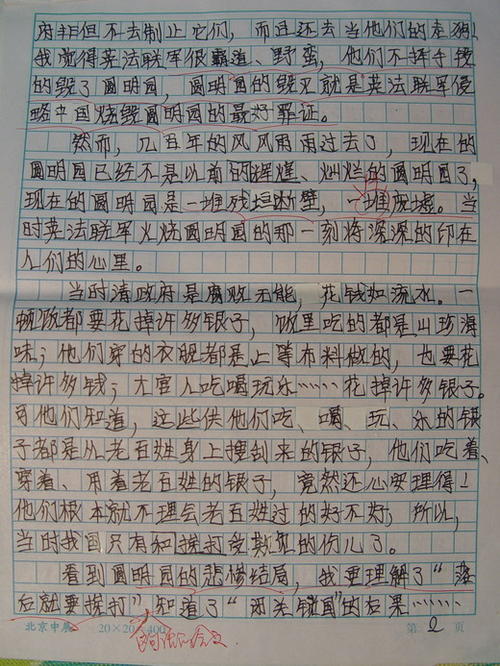 府非但不去制止它们，而且还去当他们的走狗！
我觉得英法联军很霸道、野蛮，他们不择手段
的毁了圆明园，圆明园的毁灭就是英法联军侵
略中国烧毁圆明园的最好罪证。
然而，几百年的风风雨雨过去了，现在的
圆明园已经不是以前的辉煌、灿烂的圆明园了，
现在的圆明园是一堆残垣断壁，一堆废墟。当
时英法联军火烧圆明园的那一刻将深深的印在
人们的心里。
当时清政府是腐败无能，花钱如流水。一
顿饭都要花掉许多银子，饭里吃的都是山珍海
味；他们穿的衣服都是上等布料做的，也要花
掉许多钱；大官人吃喝玩乐……花掉许多银子。
可他们知道，这些供他们吃、喝、玩、乐的银
子都是从老百姓身上搜刮来的银子，他们吃着、
穿着、用着老百姓的银子，竟然还心安理得！
他们根本就不理会老百姓过的好不好，所以，
当时我国只有和挨打受欺的份儿了。
看到圆明园的悲惨结局，我更理解了“落
后就要挨打”，知道了“闭关锁国”的后果……
北京中 20×20=400 第2页